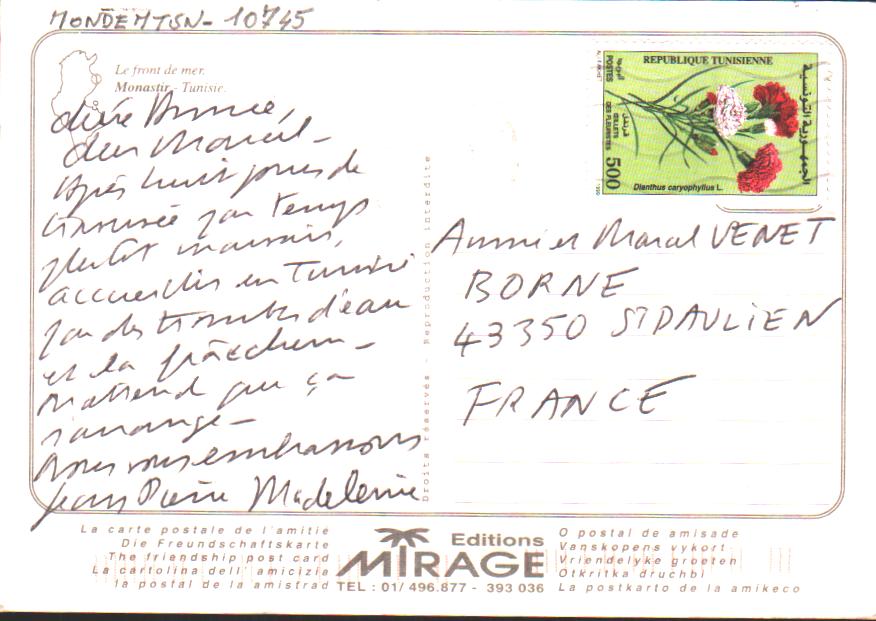 MONDEMTSN - 10745
Le front de mer.
Monastir - Tunisie.
chère Annie,
cher Marcel -
Après huit jours de
croisière par temps
plutôt mauvais,
accueillis en Tunisie
par des trombes d'eau
et la fraîcheur -
On attend que ça
s'arrange -
Nous vous embrassons
Jean Pierre Madeleine
Droits réservés - Reproduction interdite
REPUBLIQUE TUNISIENNE
الجمهورية التونسية
POSTES
البريد
ŒILLETS
DES FLEURISTES
قرنفل
500
Dianthus caryophyllus L.
Annie et Marcel VENET
BORNE
43350 ST PAULIEN
FRANCE
La carte postale de l'amitié
Die Freundschaftskarte
The friendship post card
La cartolina dell' amicizia
la postal de la amistrad
Editions
MIRAGE
TEL : 01/ 496.877 - 393 036
O postal de amisade
Vanskopens vykort
Vriendelyke groeten
Otkritka druchbi
La postkarto de la amikeco